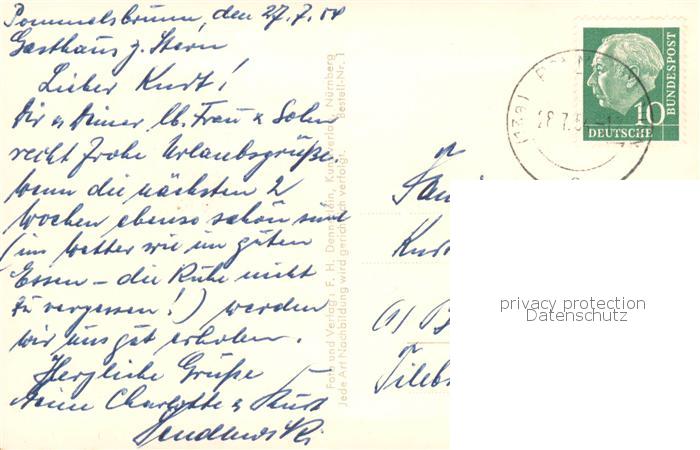 Pommelsbrunn, den 27.7.58
Gasthaus z. Stern
Lieber Kurt!
Dir u. Deiner lb. Frau u. Sohn
recht frohe Urlaubsgrüße.
wenn die nächsten 2
Wochen ebenso schön sind
(im Wetter wie im guten
Essen - die Ruhe nicht
zu vergessen!) werden
wir uns gut erholen.
Herzliche Grüße
Deine Charlotte u. Kurt
Foto und Verlag: F. H. Dennerlein, Kunstverlag, Nürnberg
Jede Art Nachbildung wird gerichtlich verfolgt. Bestell-Nr. 1
10
DEUTSCHE
BUNDESPOST
(13a)
28.7.5
Kurt
(1) B
privacy protection
Datenschutz